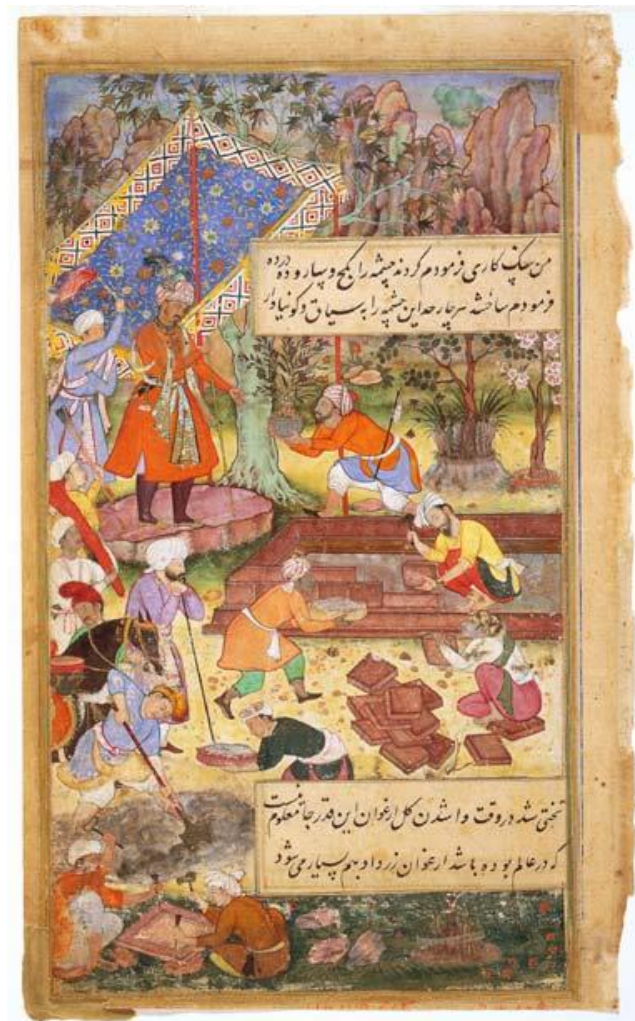 من سنک کاری فرمودم کردند چشمه را بکچ و ده درده
فرمودم ساختند هر چار حد این چشمه را به سیاق و کونیا دار
تختی شد در وقت وا شدن کل ارغوان این قدر جا معلوم نیست
که در عالم بوده باشد ارغوان زرد او هم بسیار می شود